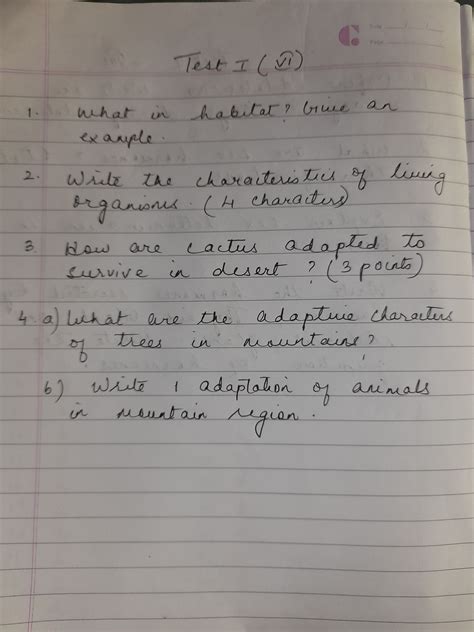 Test I (VI)
1. What in habitat? Give an
example.
2. Write the characteristics of living
organisms. (4 characters)
3. How are cactus adapted to
survive in desert ? (3 points)
4 a) What are the adaptive characters
of trees in mountains?
b) Write 1 adaptation of animals
in mountain region.